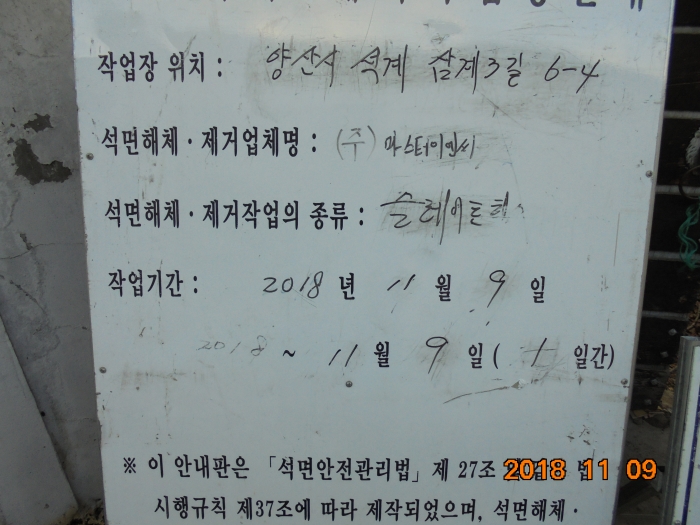 작업장 위치 : 양산시 석계 삼계3길 6-4
석면해체 · 제거업체명 : (주) 마스터이엔씨
석면해체 · 제거작업의 종류 : 슬레이트
작업기간 : 2018 년 11 월 9 일
2018 ~ 11 월 9 일 ( 1 일간)
※ 이 안내판은 「석면안전관리법」 제 27조 법
2018 11 09
시행규칙 제37조에 따라 제작되었으며, 석면해체 ·